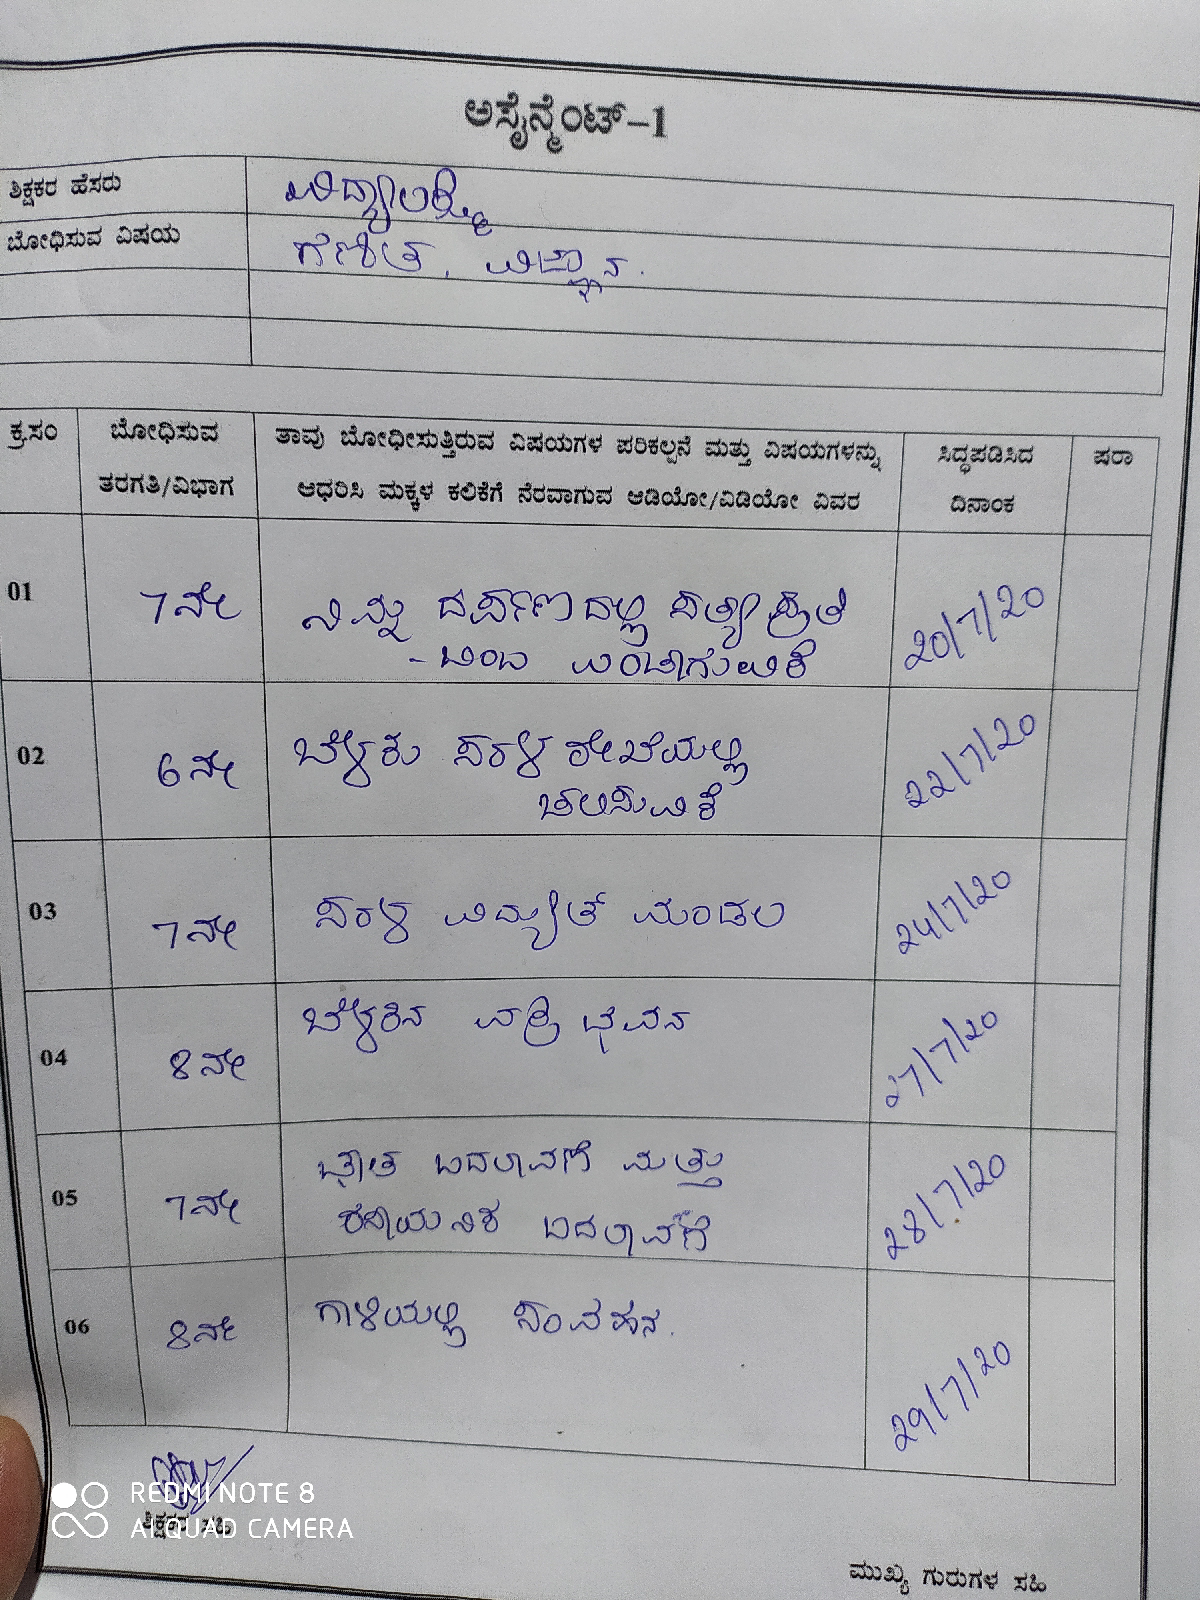 ಅಸೈನ್ಮೆಂಟ್-1
ಶಿಕ್ಷಕರ ಹೆಸರು ವಿದ್ಯಾಲಕ್ಷ್ಮಿ
ಬೋಧಿಸುವ ವಿಷಯ ಗಣಿತ, ವಿಜ್ಞಾನ.
ಕ್ರ.ಸಂ ಬೋಧಿಸುವ ತಾವು ಬೋಧೀಸುತ್ತಿರುವ ವಿಷಯಗಳ ಪರಿಕಲ್ಪನೆ ಮತ್ತು ವಿಷಯಗಳನ್ನು ಸಿದ್ಧಪಡಿಸಿದ ಷರಾ
ತರಗತಿ/ವಿಭಾಗ ಆಧರಿಸಿ ಮಕ್ಕಳ ಕಲಿಕೆಗೆ ನೆರವಾಗುವ ಆಡಿಯೋ/ವಿಡಿಯೋ ವಿವರ ದಿನಾಂಕ
01 7ನೇ ನಿಮ್ನ ದರ್ಪಣದಲ್ಲಿ ಸತ್ಯ ಪ್ರತಿ 20/7/20
-ಬಿಂಬ ಉಂಟಾಗುವಿಕೆ
02 6ನೇ ಬೆಳಕು ಸರಳ ರೇಖೆಯಲ್ಲಿ 22/7/20
ಚಲಿಸುವಿಕೆ
03 7ನೇ ಸರಳ ವಿದ್ಯುತ್ ಮಂಡಲ 24/7/20
04 8ನೇ ಬೆಳಕಿನ ವಕ್ರೀಭವನ 27/7/20
05 7ನೇ ಭೌತ ಬದಲಾವಣೆ ಮತ್ತು 28/7/20
ರಸಾಯನಿಕ ಬದಲಾವಣೆ
06 8ನೇ ಗಾಳಿಯಲ್ಲಿ ಸಂವಹನ. 29/7/20
REDMI NOTE 8
AI QUAD CAMERA
ಶಿಕ್ಷಕರ ಸಹಿ
ಮುಖ್ಯ ಗುರುಗಳ ಸಹಿ